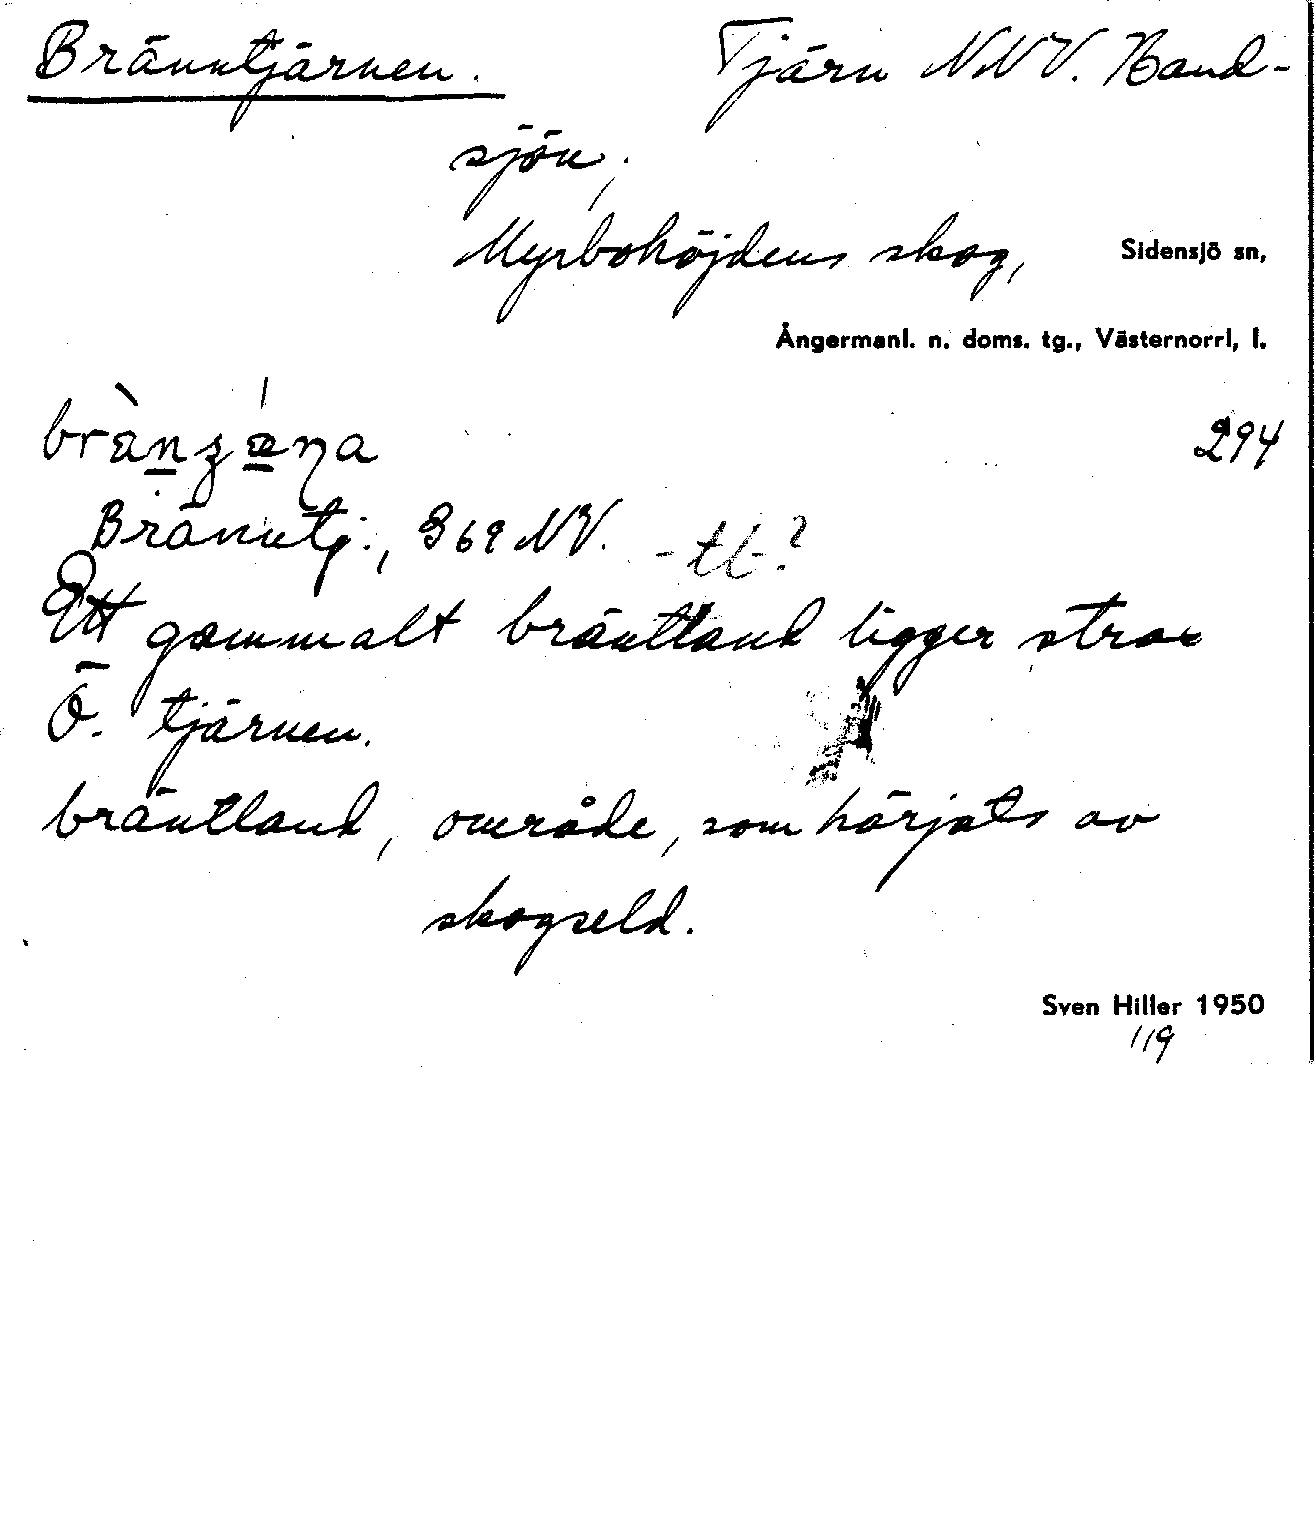 Bränntjärnen. Tjärn NNV. Hand-
sjön,
Myrbohöjdens skog, Sidensjö sn,
Ångermanl. n. doms. tg., Västernorrl. l.
294
Bränntj., 369 NV. -tt-?
Ett gammalt bräntland ligger strax
Ö. tjärnen.
bräntland, område, som härjats av
skogseld.
Sven Hiller 1950
119